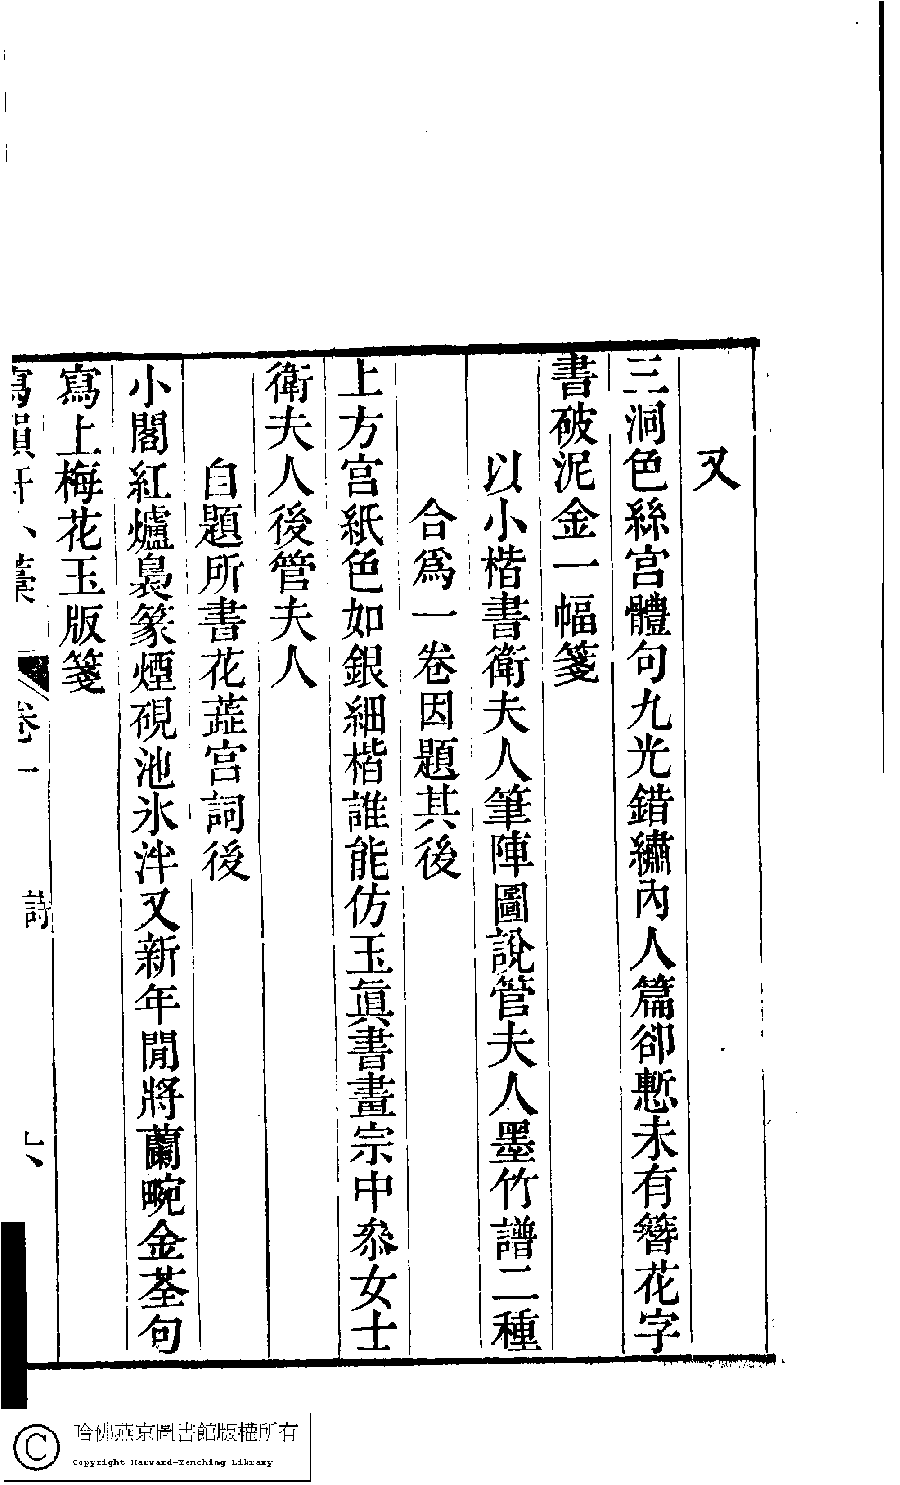 又
三洞色絲宮體句九光錯繡內人篇卻慙未有簪花字
書破泥金一幅箋
以小楷書衛夫人筆陣圖說管夫人墨竹譜二種
合爲一卷因題其後
上方宮紙色如銀細楷誰能仿玉眞書畫宗中叅女士
衛夫人後管夫人
自題所書花蘂宮詞後
小閣紅爐裊篆煙硯池氷泮又新年閒將蘭畹金荃句
寫上梅花玉版箋
寫韻軒小藁 卷一 詩
哈佛燕京圖書館版權所有
Copyright Harvard-Yenching Library